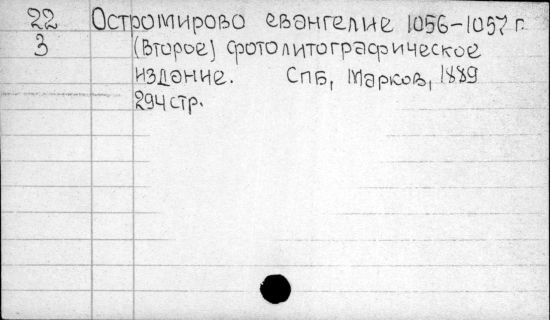 22 Остромирово евангелие 1056-1057 г.
3 (Второе) фотолитографическое
издание. СПБ, Марков, 1889
294 стр.